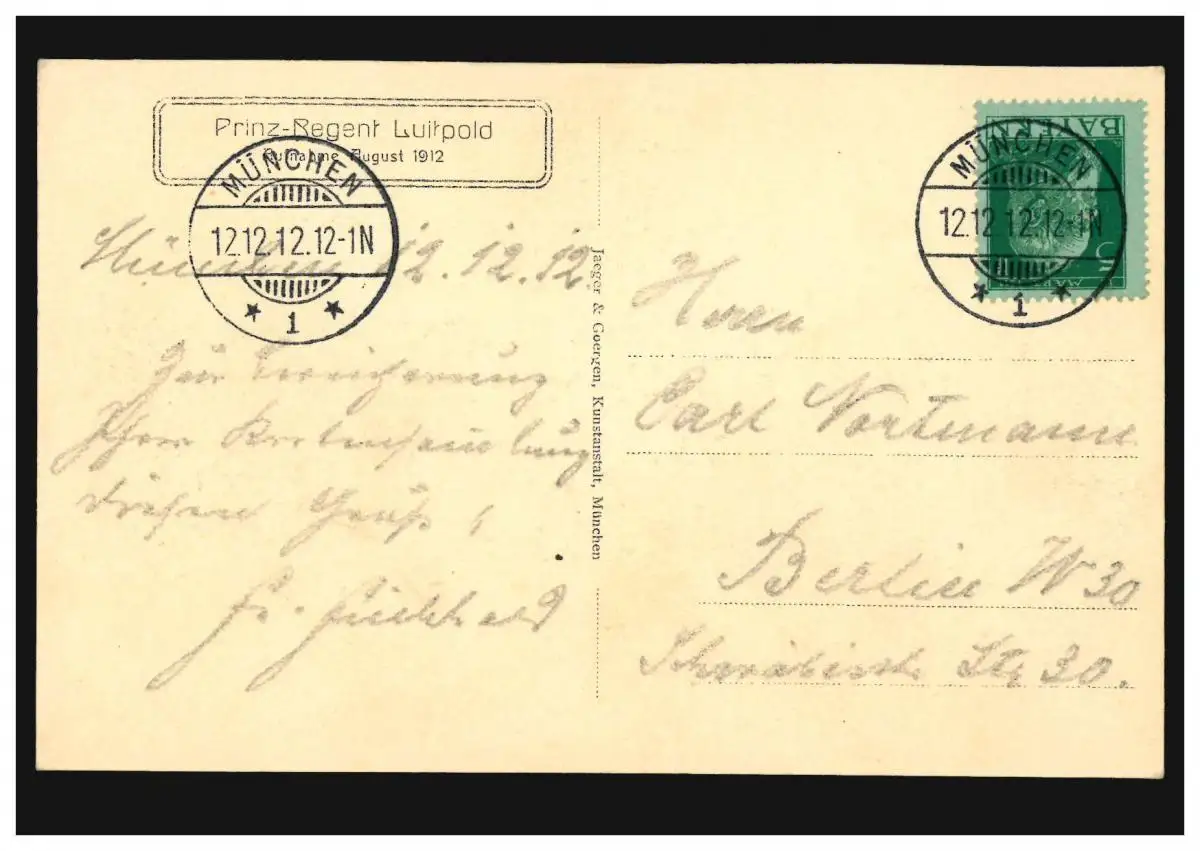 Prinz-Regent Luitpold
Aufnahme August 1912
MÜNCHEN
12.12.12.12-1N
1
München 12.12.12.
Zur Erinnerung
Ihrer Kartensammlung
diesen Gruß!
Fr.
Jaeger & Goergen, Kunstanstalt, München
BAYERN
5
MÜNCHEN
12.12.12.12-1N
1
Herrn
Carl Nortmann
Berlin W 30
Schwäbische Str 30.